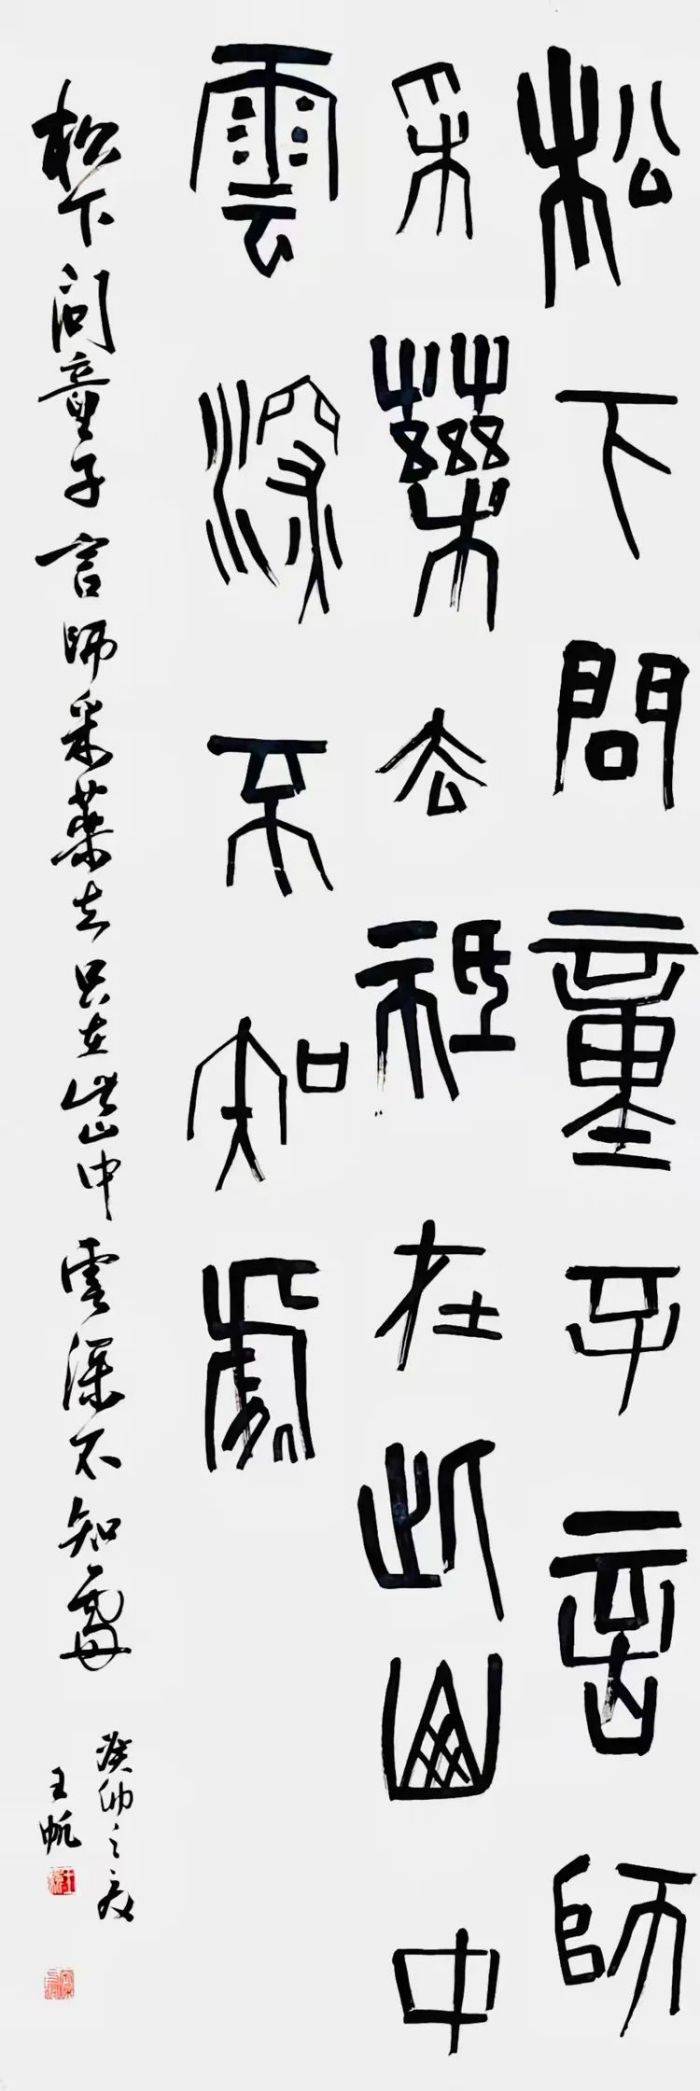 松下問童子言師
采藥去祗在此山中
雲深不知處
松下问童子言师采藥去只在此山中雲深不知處
癸卯之夏
王帆